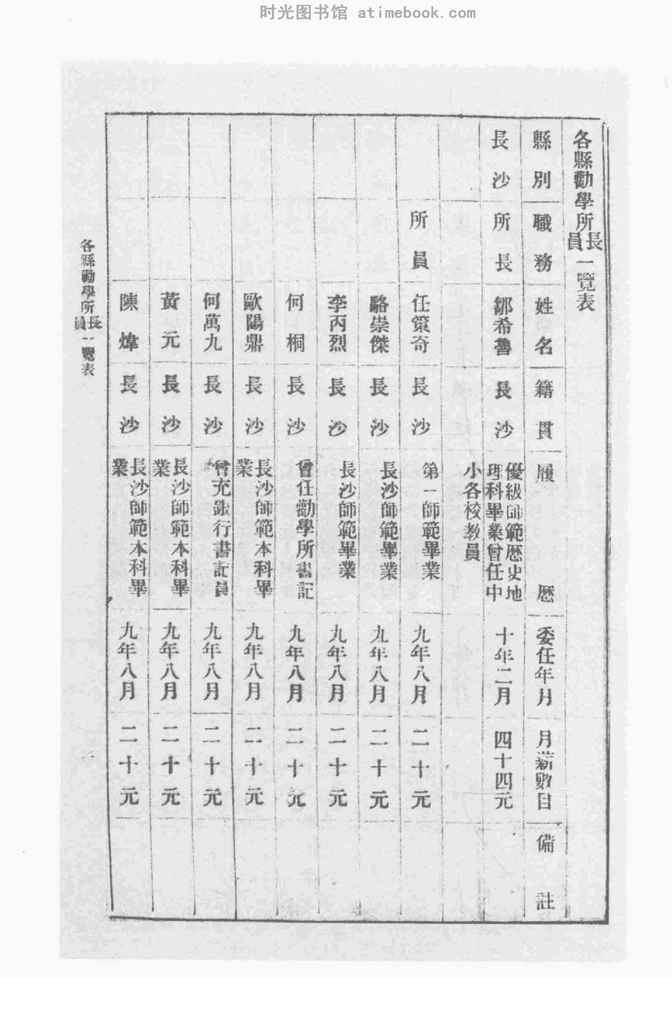 时光图书馆 atimebook.com
各縣勸學所長員一覽表
縣別 職務 姓名 籍貫 履歷 委任年月 月薪數目 備註
長沙 所長 鄒希魯 長沙 優級師範歷史地
理科畢業曾任中
小各校教員 十年二月 四十四元
所員 任策奇 長沙 第一師範畢業 九年八月 二十元
駱崇傑 長沙 長沙師範畢業 九年八月 二十元
李丙烈 長沙 長沙師範畢業 九年八月 二十元
何桐 長沙 曾任勸學所書記 九年八月 二十元
歐陽鼎 長沙 長沙師範本科畢
業 九年八月 二十元
何萬九 長沙 曾充銀行書記員 九年八月 二十元
黃元 長沙 長沙師範本科畢
業 九年八月 二十元
陳煒 長沙 長沙師範本科畢
業 九年八月 二十元
各縣勸學所長員一覽表